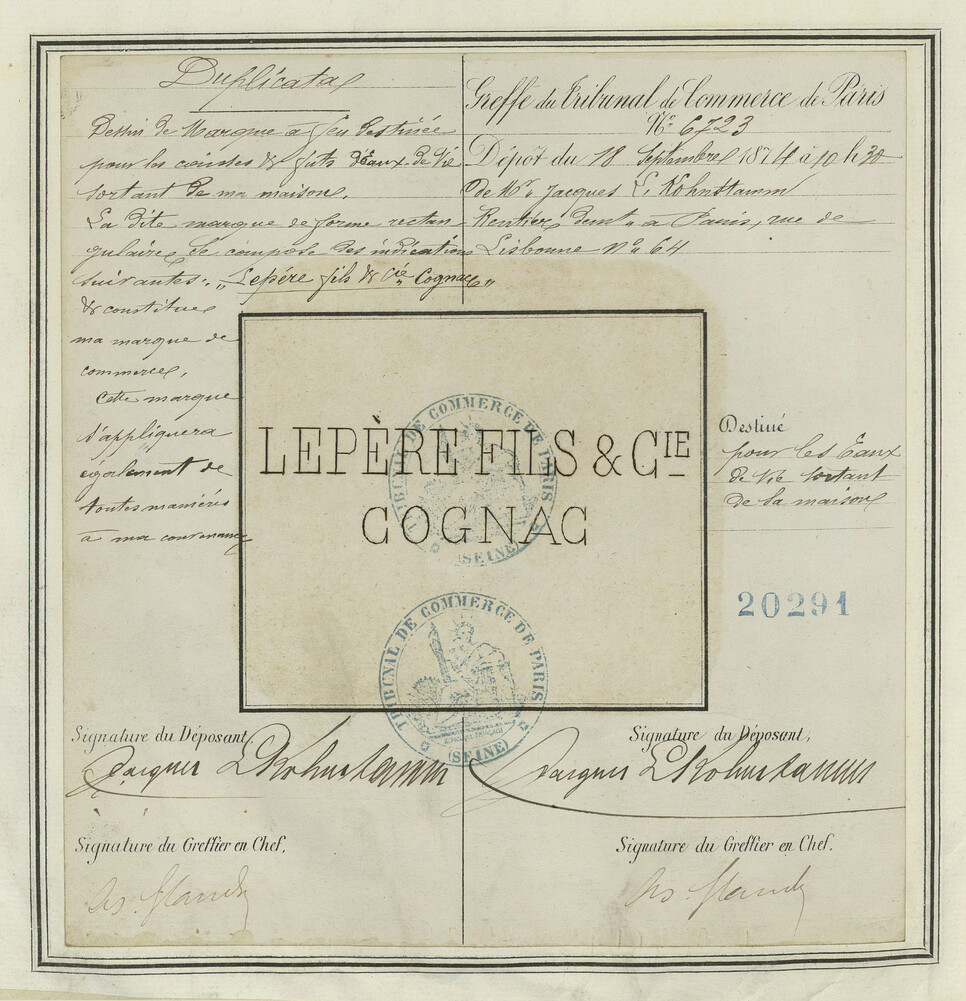 Duplicata
Dessin de Marque à feu destinée
pour les caisses & futs d'Eaux de Vie
sortant de ma maison.
La dite marque de forme rectan-
gulaire se compose des indications
suivantes: „Lepère fils & Cie Cognac"
& constitue
ma marque de
commerce,
cette marque
s'appliquera
également de
toutes manières
à ma convenance
Greffe du Tribunal de Commerce de Paris
No. 6723
Dépôt du 18 Septembre 1874 à 10 h 30
de Mr. Jacques L. Kohnstamm
Rentier, demt. à Paris, rue de
Lisbonne No. 64
LEPÈRE FILS & CIE
COGNAC
TRIBUNAL DE COMMERCE DE PARIS
(SEINE)
TRIBUNAL DE COMMERCE DE PARIS
(SEINE)
Destiné
pour les Eaux
de Vie sortant
de la maison
20291
Signature du Déposant
Jacques L Kohnstamm
Signature du Déposant,
Jacques L Kohnstamm
Signature du Greffier en Chef,
Signature du Greffier en Chef.